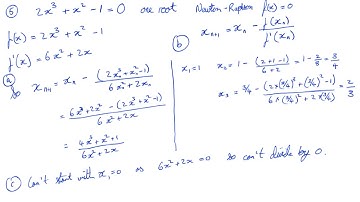 ⑤ 2x³ + x² - 1 = 0 one root Newton-Raphson f(x) = 0
f(x) = 2x³ + x² - 1
f'(x) = 6x² + 2x
ⓐ
so xₙ₊₁ = xₙ - (2xₙ³ + xₙ² - 1) / (6xₙ² + 2xₙ)
= (6x³ + 2x² - (2x³ + x² - 1)) / (6x² + 2x)
= (4x³ + x² + 1) / (6x² + 2x)
ⓑ xₙ₊₁ = xₙ - f(xₙ) / f'(xₙ)
x₁ = 1 x₂ = 1 - (2+1-1) / (6+2) = 1 - 2/8 = 3/4
x₃ = 3/4 - (2×(3/4)³ + (3/4)² - 1) / (6×(3/4)² + 2×(3/4)) = 2/3
ⓒ Can't start with x₁ = 0 as 6x² + 2x = 0 so can't divide by 0.